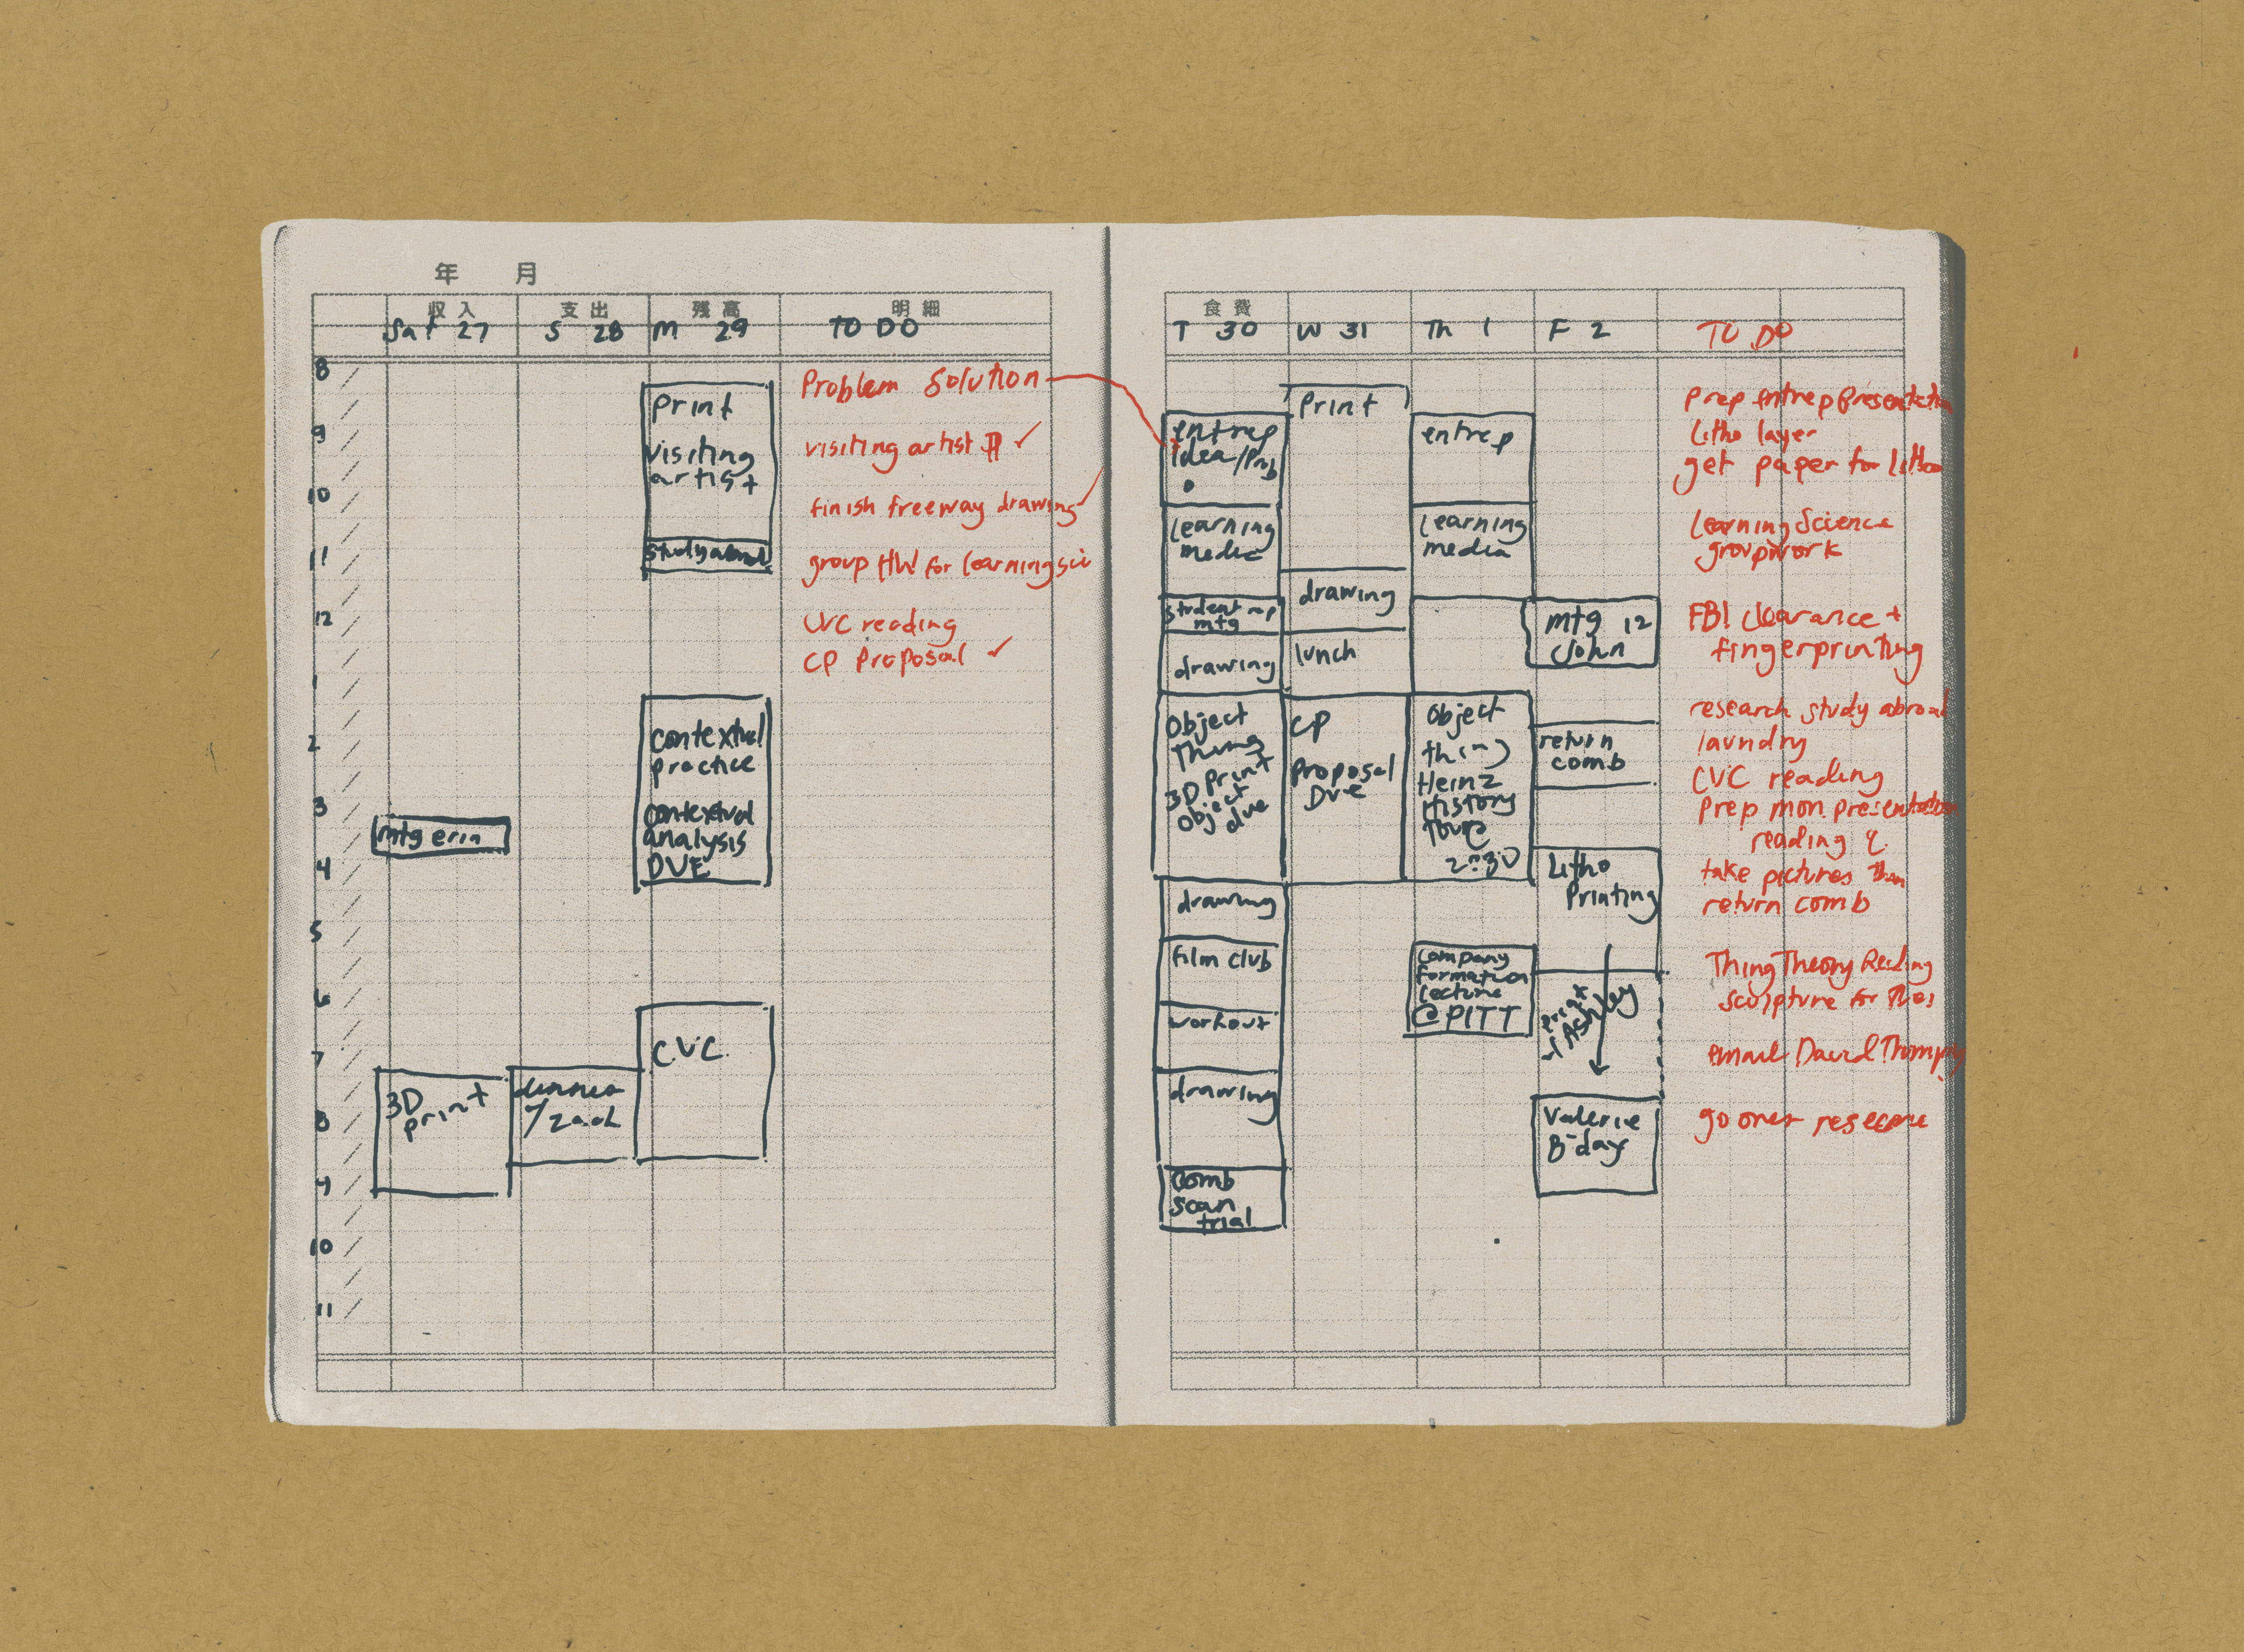 年 月
収入 支出 残高 明細
Sat 27 S 28 M 29 TO DO
8
9
10
11
12
1
2
3
4
5
6
7
8
9
10
11
mtg erin
3D
print
dinner
/zach
print
visiting
artist
study abroad
contextual
practice
contextual
analysis
DUE
CVC
Problem Solution
visiting artist
finish freeway drawing
group HW for learning sci
CVC reading
CP Proposal
食費
T 30 W 31 Th 1 F 2 TO DO
entrep
idea/Prob
learning
media
student rep
mtg
drawing
Object
Thing
3D print
object
due
drawing
film club
workout
drawing
comb
scan
trial
Print
drawing
lunch
CP
Proposal
Due
entrep
learning
media
object
thing
Heinz
History
Tour
2:30
company
formation
lecture
@PITT
mtg 12
John
return
comb
Litho
Printing
print
Ashley
Valerie
B-day
Prep entrep Presentation
Litho layer
get paper for litho
Learning Science
groupwork
FBI clearance +
fingerprinting
research study abroad
laundry
CVC reading
Prep mon. presentation
reading q.
take pictures then
return comb
Thing Theory Reading
sculpture for Tues
email David Thompy
go over